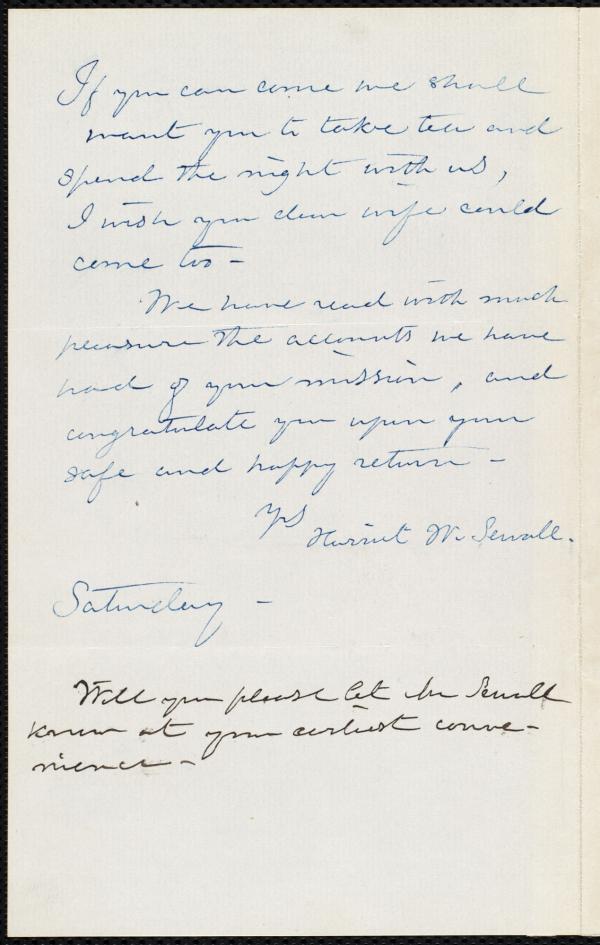 If you can come we shall
want you to take tea and
spend the night with us,
I wish you dear wife could
come too -
We have read with much
pleasure the accounts we have
had of your mission, and
congratulate you upon your
safe and happy return -
Yrs
Harriet W. Sewall.
Saturday -
Will you please let Mr Sewall
know at your earliest conve-
nience -